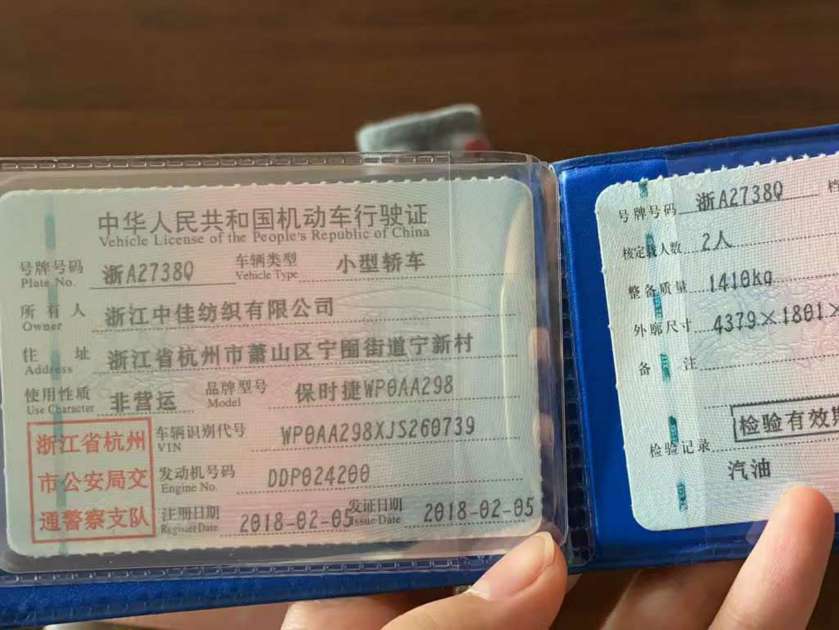 中华人民共和国机动车行驶证
Vehicle License of the People's Republic of China
号牌号码 浙A2738Q 车辆类型 小型轿车
Plate No. Vehicle Type
所有人 浙江中佳纺织有限公司
Owner
住址 浙江省杭州市萧山区宁围街道宁新村
Address
使用性质 非营运 品牌型号 保时捷WP0AA298
Use Character Model
浙江省杭州
市公安局交
通警察支队
车辆识别代号 WP0AA298XJS260739
VIN
发动机号码 DDP024200
Engine No.
注册日期 2018-02-05 发证日期 2018-02-05
Register Date Issue Date
号牌号码 浙A2738Q
核定载人数 2人
整备质量 1410kg
外廓尺寸 4379×1801×
备注
检验有效期
检验记录
汽油